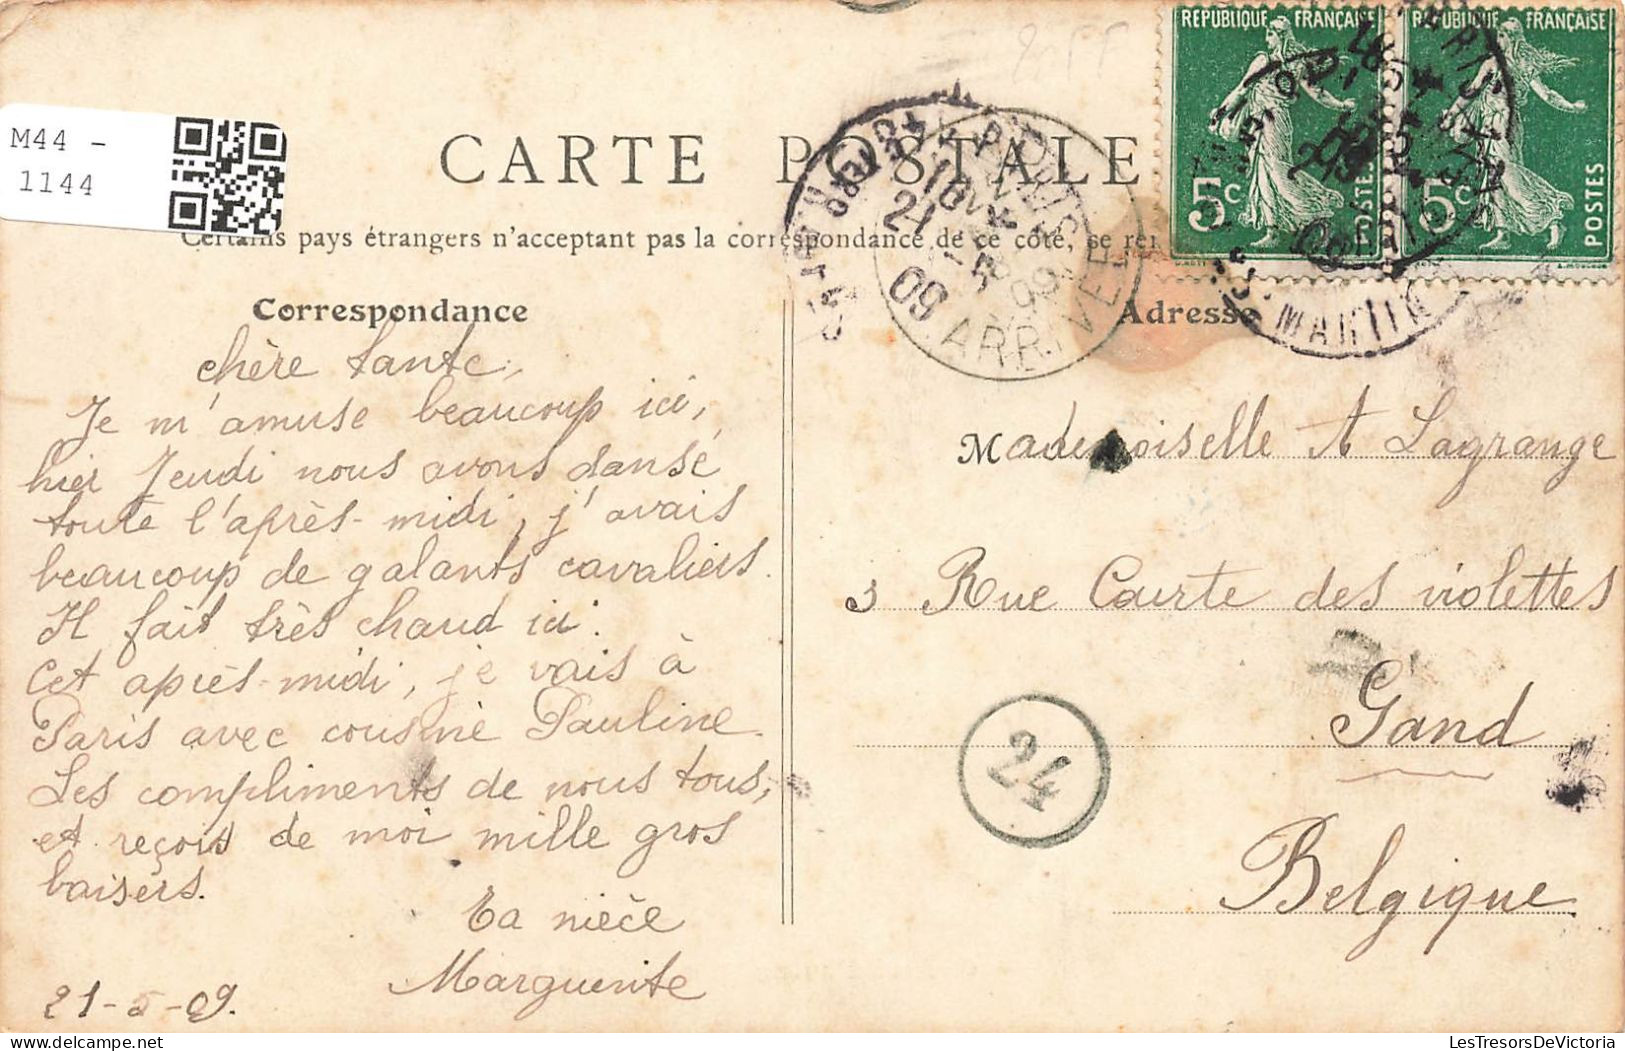 M44 -
1144
RÉPUBLIQUE FRANÇAISE
5c
POSTES
RÉPUBLIQUE FRANÇAISE
5c
POSTES
CARTE POSTALE
Certains pays étrangers n'acceptant pas la correspondance de ce coté, se
Correspondance
Adresse
ARRIVÉE
21 - 5
09
chère tante,
Je m'amuse beaucoup ici,
hier Jeudi nous avons dansé
toute l'après-midi, j'avais
beaucoup de galants cavaliers.
Il fait très chaud ici.
Cet après-midi, je vais à
Paris avec cousine Pauline.
Les compliments de nous tous,
et reçois de moi mille gros
baisers.
Ta nièce
Marguerite
21-5-09.
Mademoiselle A Lagrange
3 Rue Courte des violettes
Gand
Belgique
24
LesTresorsDeVictoria.com